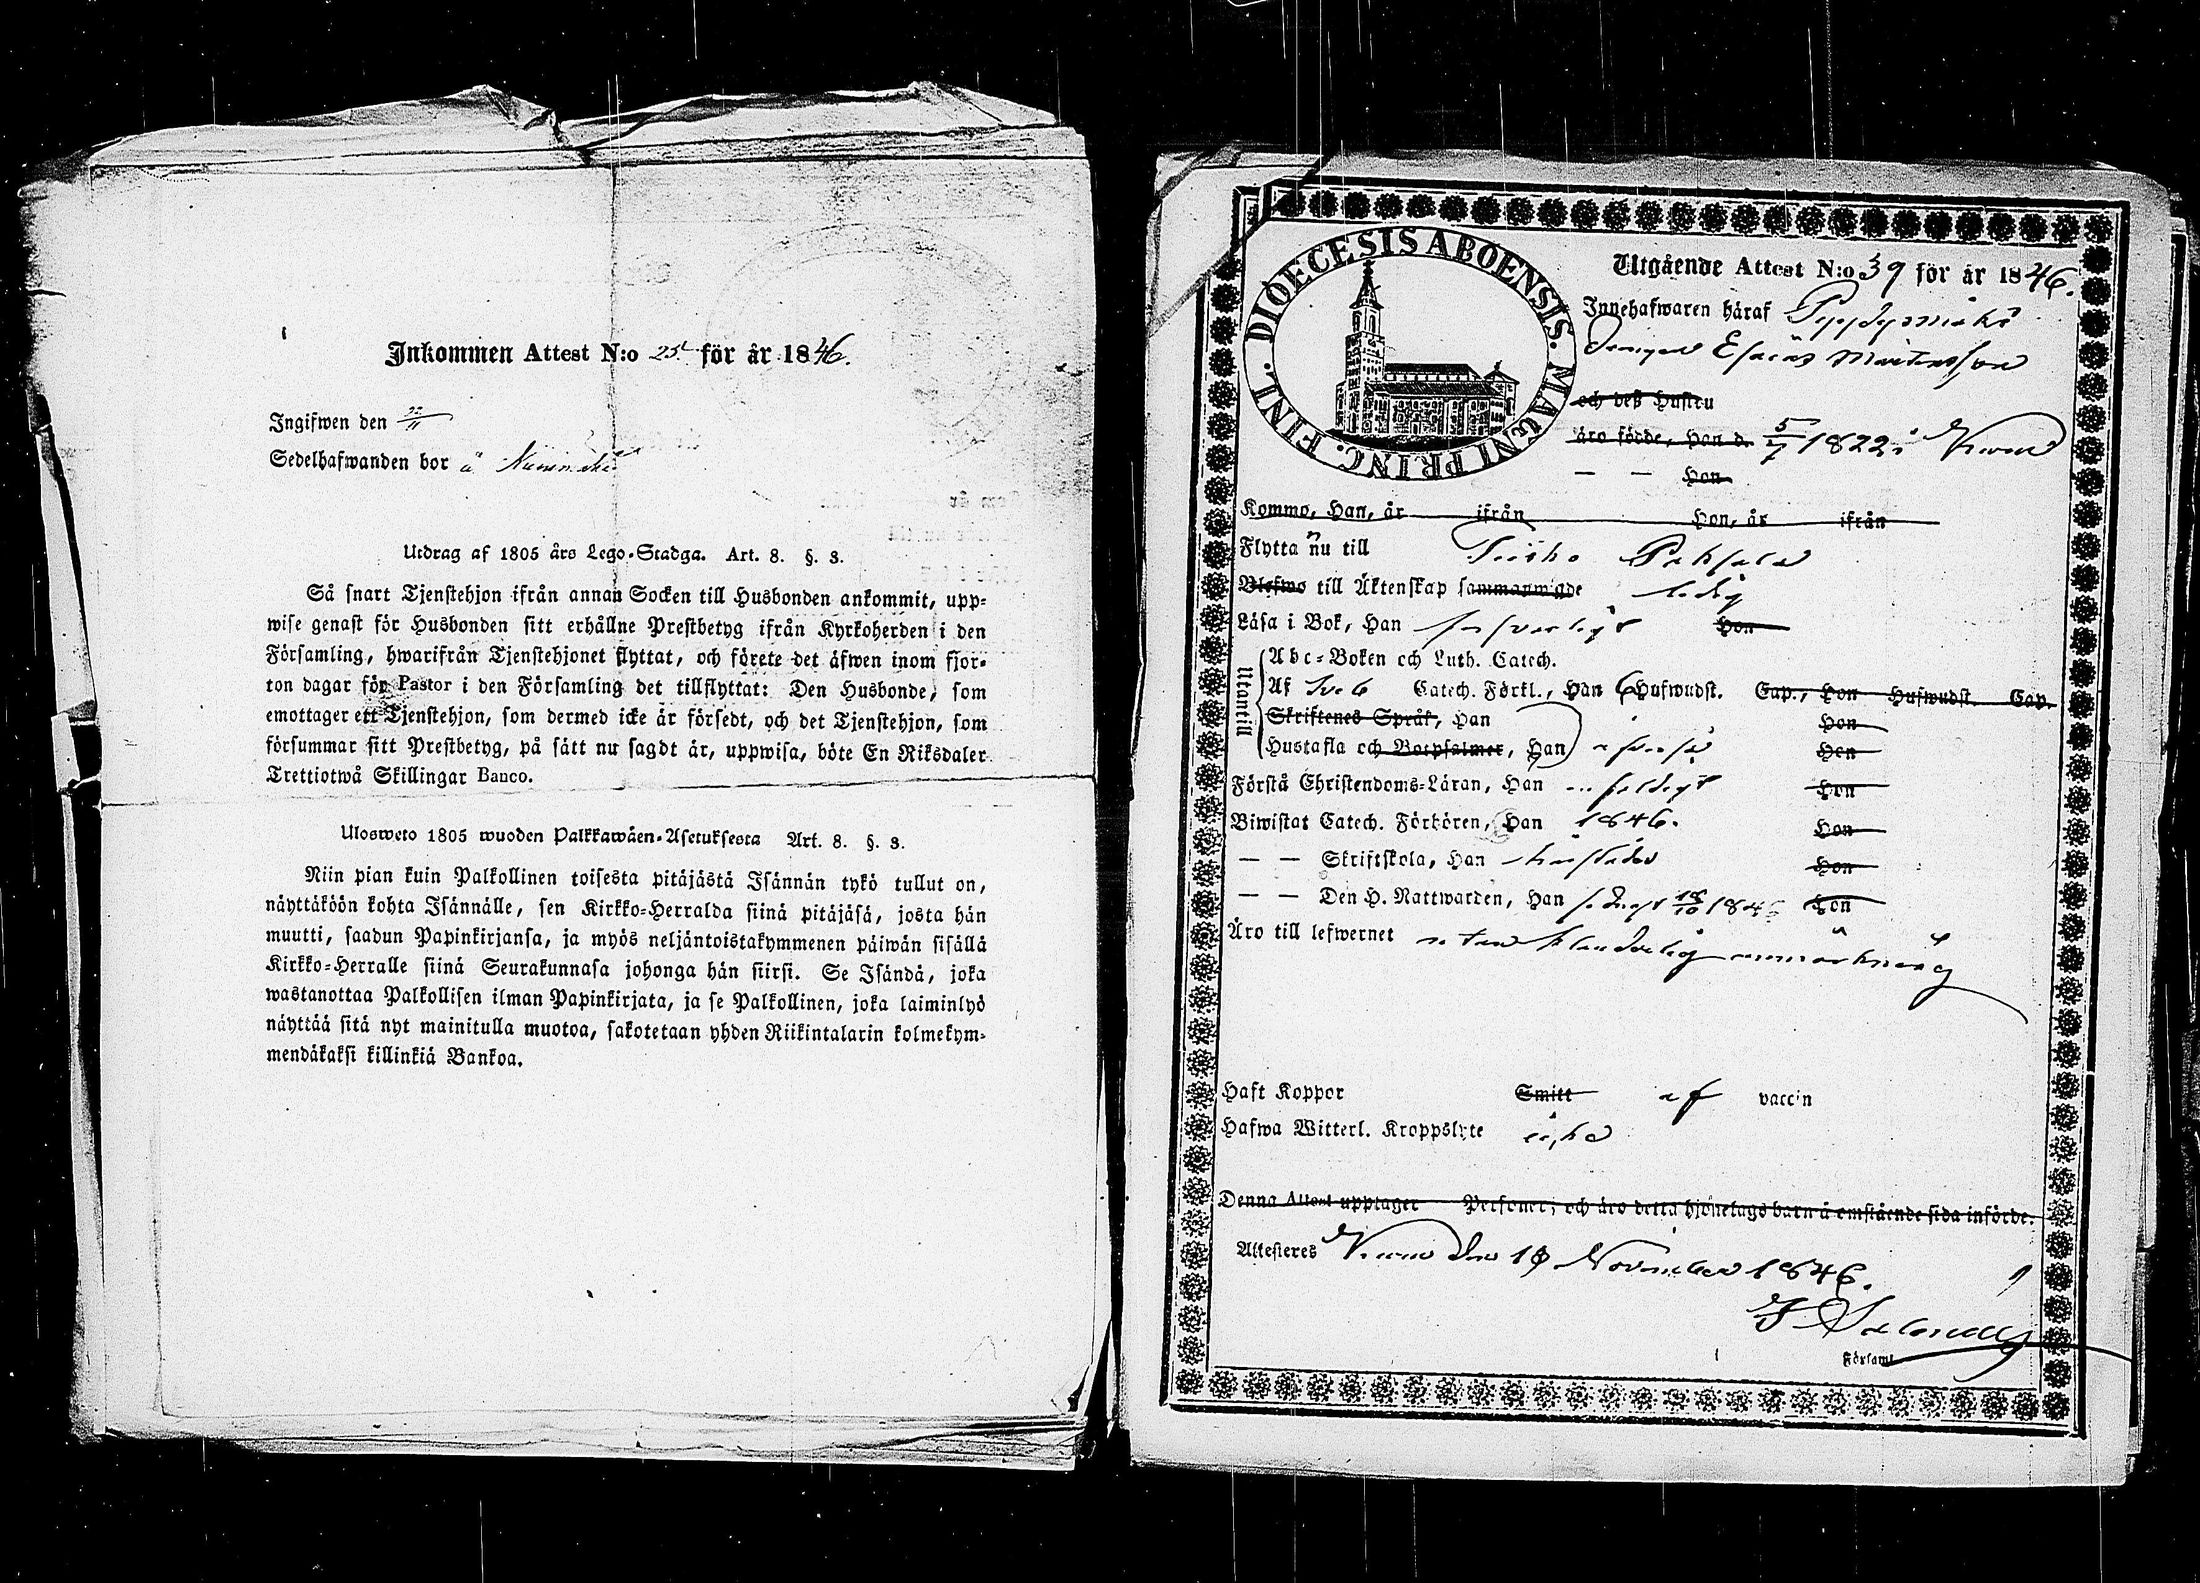 Inkommen Attest N:o 25 för år 1846.
Ingifwen den 22/11
Sedelhafwanden bor å
Utdrag af 1805 års Lego-Stadga. Art. 8. §. 3.
Så snart Tjenstehjon ifrån annan Socken till Husbonden ankommit, upp-
wise genast för Husbonden sitt erhållne Prestbetyg ifrån Kyrkoherden i den
Församling, hwarifrån Tjenstehjonet flyttat, och förete det äfwen inom fjor-
ton dagar för Pastor i den Församling det tillflyttat: Den Husbonde, som
emottager ett Tjenstehjon, som dermed icke är försedt, och det Tjenstehjon, som
försummar sitt Prestbetyg, på sätt nu sagdt är, uppwisa, böte En Riksdaler
Trettiotwå Skillingar Banco.
Ulosweto 1805 wuoden Palkkawäen-Asetuksesta Art. 8. §. 3.
Niin pian kuin Palkollinen toisesta pitäjästä Isännän tykö tullut on,
näyttäköön kohta Isännälle, sen Kirkko-Herralda siinä pitäjäsä, josta hän
muutti, saadun Papinkirjansa, ja myös neljäntoistakymmenen päiwän sisällä
Kirkko-Herralle siinä Seurakunnasa johonga hän siirsi. Se Isändä, joka
wastanottaa Palkollisen ilman Papinkirjata, ja se Palkollinen, joka laiminlyö
näyttää sitä nyt mainitulla muotoa, sakotetaan yhden Riikintalarin kolmekym-
mendäkaksi killinkiä Bankoa.
DIOECESIS ABOENSIS. MAGNI PRINC. FINL.
Utgående Attest N:o 39 för år 1846.
Innehafwaren häraf
Drengen Esaias Mårtensson
och deß Hustru
äro födde, Han d. 5/7 1822 i
— — Hon
Kommo, Han, år ifrån Hon, år ifrån
Flytta nu till
Blefwo till Äktenskap sammanwigde ledig
Läsa i Bok, Han försvarligt Hon
Utantill
Abc-Boken och Luth. Catech.
Af Sveb Catech. Förkl., Han 6 Hufwudst. Cap., Hon Hufwudst. Cap.
Skriftenes Språk, Han Hon
Hustafla och Botpsalmer, Han Hon
Förstå Christendoms-Läran, Han enfaldigt Hon
Biwistat Catech. Förhören, Han 1846. Hon
— — Skriftskola, Han Hon
— — Den H. Nattwarden, Han sednast 18/10 1846 Hon
Äro till lefwernet utan klanderlig anmärkning
Haft Koppor Smitt af vaccin
Hafwa Witterl. Kroppslyte icke
Denna Attest upptager Personer; och äro detta hjonelags barn å omstående sida införde.
Attesteras den 18 November 1846.
Församl.